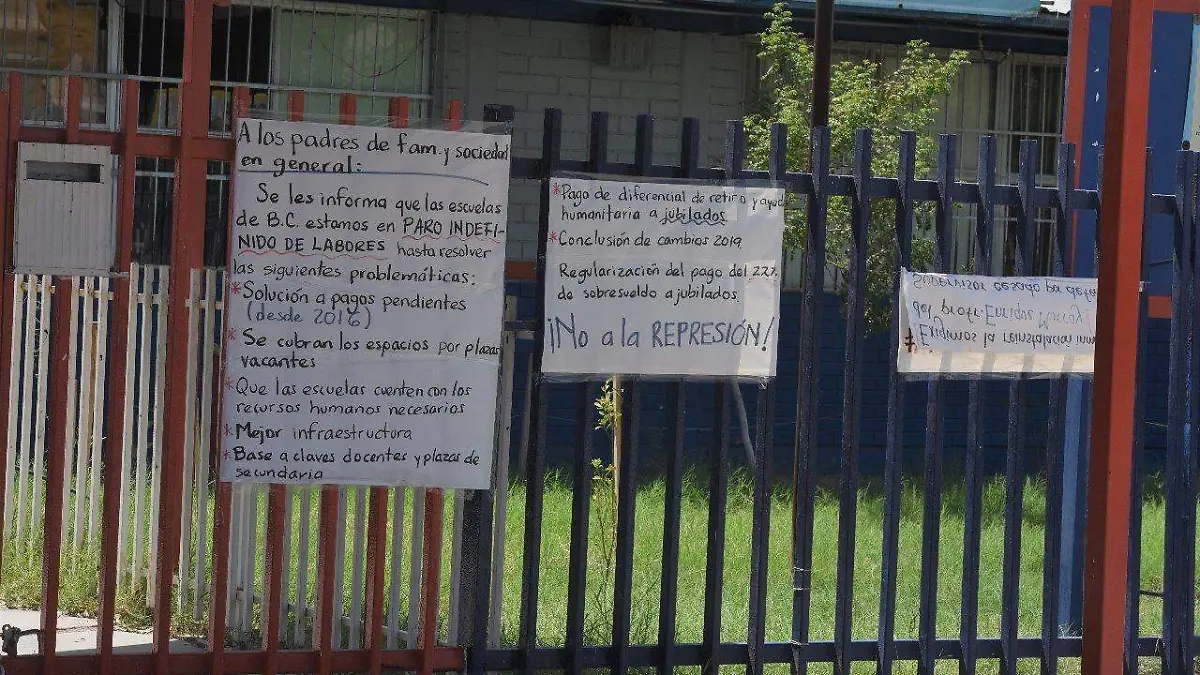 A los padres de fam. y sociedad
en general:
Se les informa que las escuelas
de B.C. estamos en PARO INDEFI-
NIDO DE LABORES hasta resolver
las siguientes problemáticas:
*Solución a pagos pendientes
(desde 2016)
* Se cubran los espacios por plazas
vacantes
*Que las escuelas cuenten con los
recursos humanos necesarios
*Mejor infraestructora
*Base a claves docentes y plazas de
secundaria
*Pago de diferencial de retiro y ayuda
humanitaria a jubilados
*Conclusión de cambios 2019
Regularización del pago del 22%
de sobresueldo a jubilados.
¡No a la REPRESIÓN!
*Exigimos la reinstalación inm
del profr. Enrique
Supervisor cesado